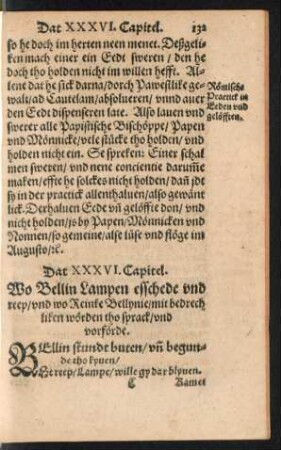 Dat XXXVI. Capitel. 132
so he doch im herten neen menet. Deßgeli-
ken mach einer ein Eedt sweren / den he
doch tho holden nicht im willen hefft. Al-
lene dat he sick darna / dorch Pawestlike ge-
walt / ad Cautelam / absolueren / vnnd auer
den Eedt dispenseren late. Also lauen vnd
swerer alle Papistische Bischöppe / Papen
vnd Mönnicke / vele stücke tho holden / vnd
holden nicht ein. Se spreken: Einer schal
nen sweren / vnd nene concientie darum̃e
maken / effte he solckes nicht holden / dañ jdt
sy in der practick allenthaluen / also gewänt
lick. Derhaluen Eede vñ gelöffte don / vnd
nicht holden / js by Papen / Mönnicken vnd
Nonnen / so gemeine / alse lüse vnd flöge im
Augusto / ꝛc.
Römisch-
Praetick in
Eeden vnd
gelöfften.
Dat XXXVI. Capitel.
Wo Bellin Lampen esschede vnd
reep / vnd wo Reinke Bellynie / mit bedrech
liken wörden tho sprack / vnd
vorförde.
BEllin stundt buten / vñ begun-
de tho kyuen /
He reep / Lampe / wille gy dar blyuen.
C Kamet